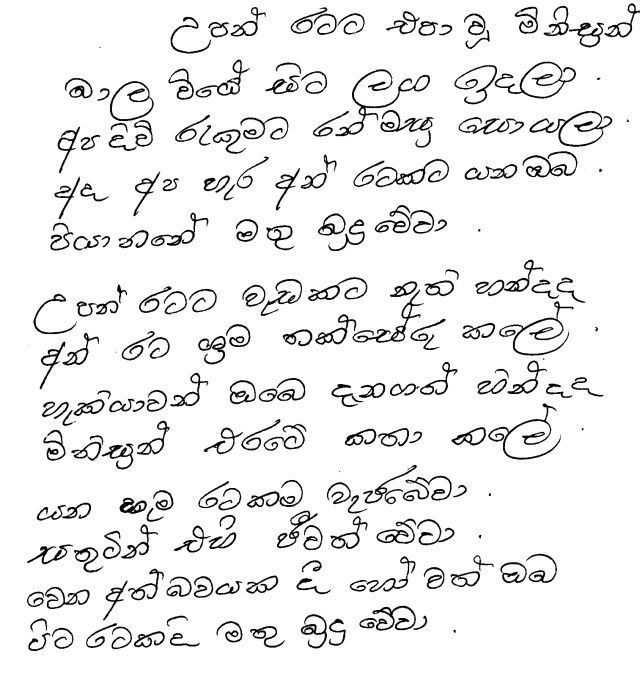 උපන් රටට එපා වූ මිනිසුන්
බාල වියේ සිට ලය ඉදලා .
අප දිවි රැකුමට රන් මසු සොයලා
අද අප හැර අන් රටකට යන ඔබ .
පියාණනේ මතු බුදු වේවා .
උපන් රටට වැඩකට නැත හන්දද
අන් රට ශ්‍රම තක්සේරු කලේ .
හැකියාවන් ඔබෙ දැනගත් හන්දද
මිනිසුන් එරටේ කතා කලේ .
යන හැම රටකම වැජබේවා .
සතුටින් එහි ජීවත් වේවා .
වෙන අත්බවයක දී හෝ මත් ඔබ
පිට රටකදි මතු බුදු වේවා .